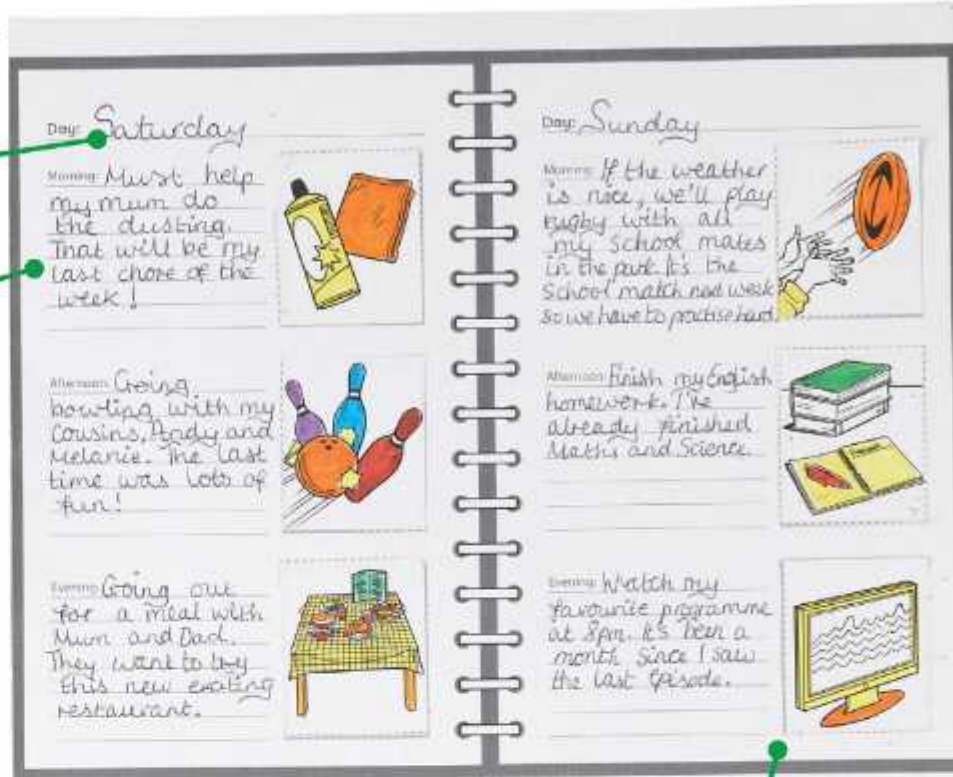 Day: Saturday
Morning: Must help
my mum do
the dusting.
That will be my
last chore of the
week!
Afternoon: Going
bowling with my
cousins, Andy and
Melanie. The last
time was lots of
fun!
Evening: Going out
for a meal with
Mum and Dad.
They want to try
this new exciting
restaurant.
Day: Sunday
Morning: If the weather
is nice, we'll play
rugby with all
my school mates
in the park. It's the
School match next week
so we have to practise hard.
Afternoon: Finish my English
homework. I've
already finished
Maths and Science.
Evening: Watch my
favourite programme
at 8pm. It's been a
month since I saw
the last episode.